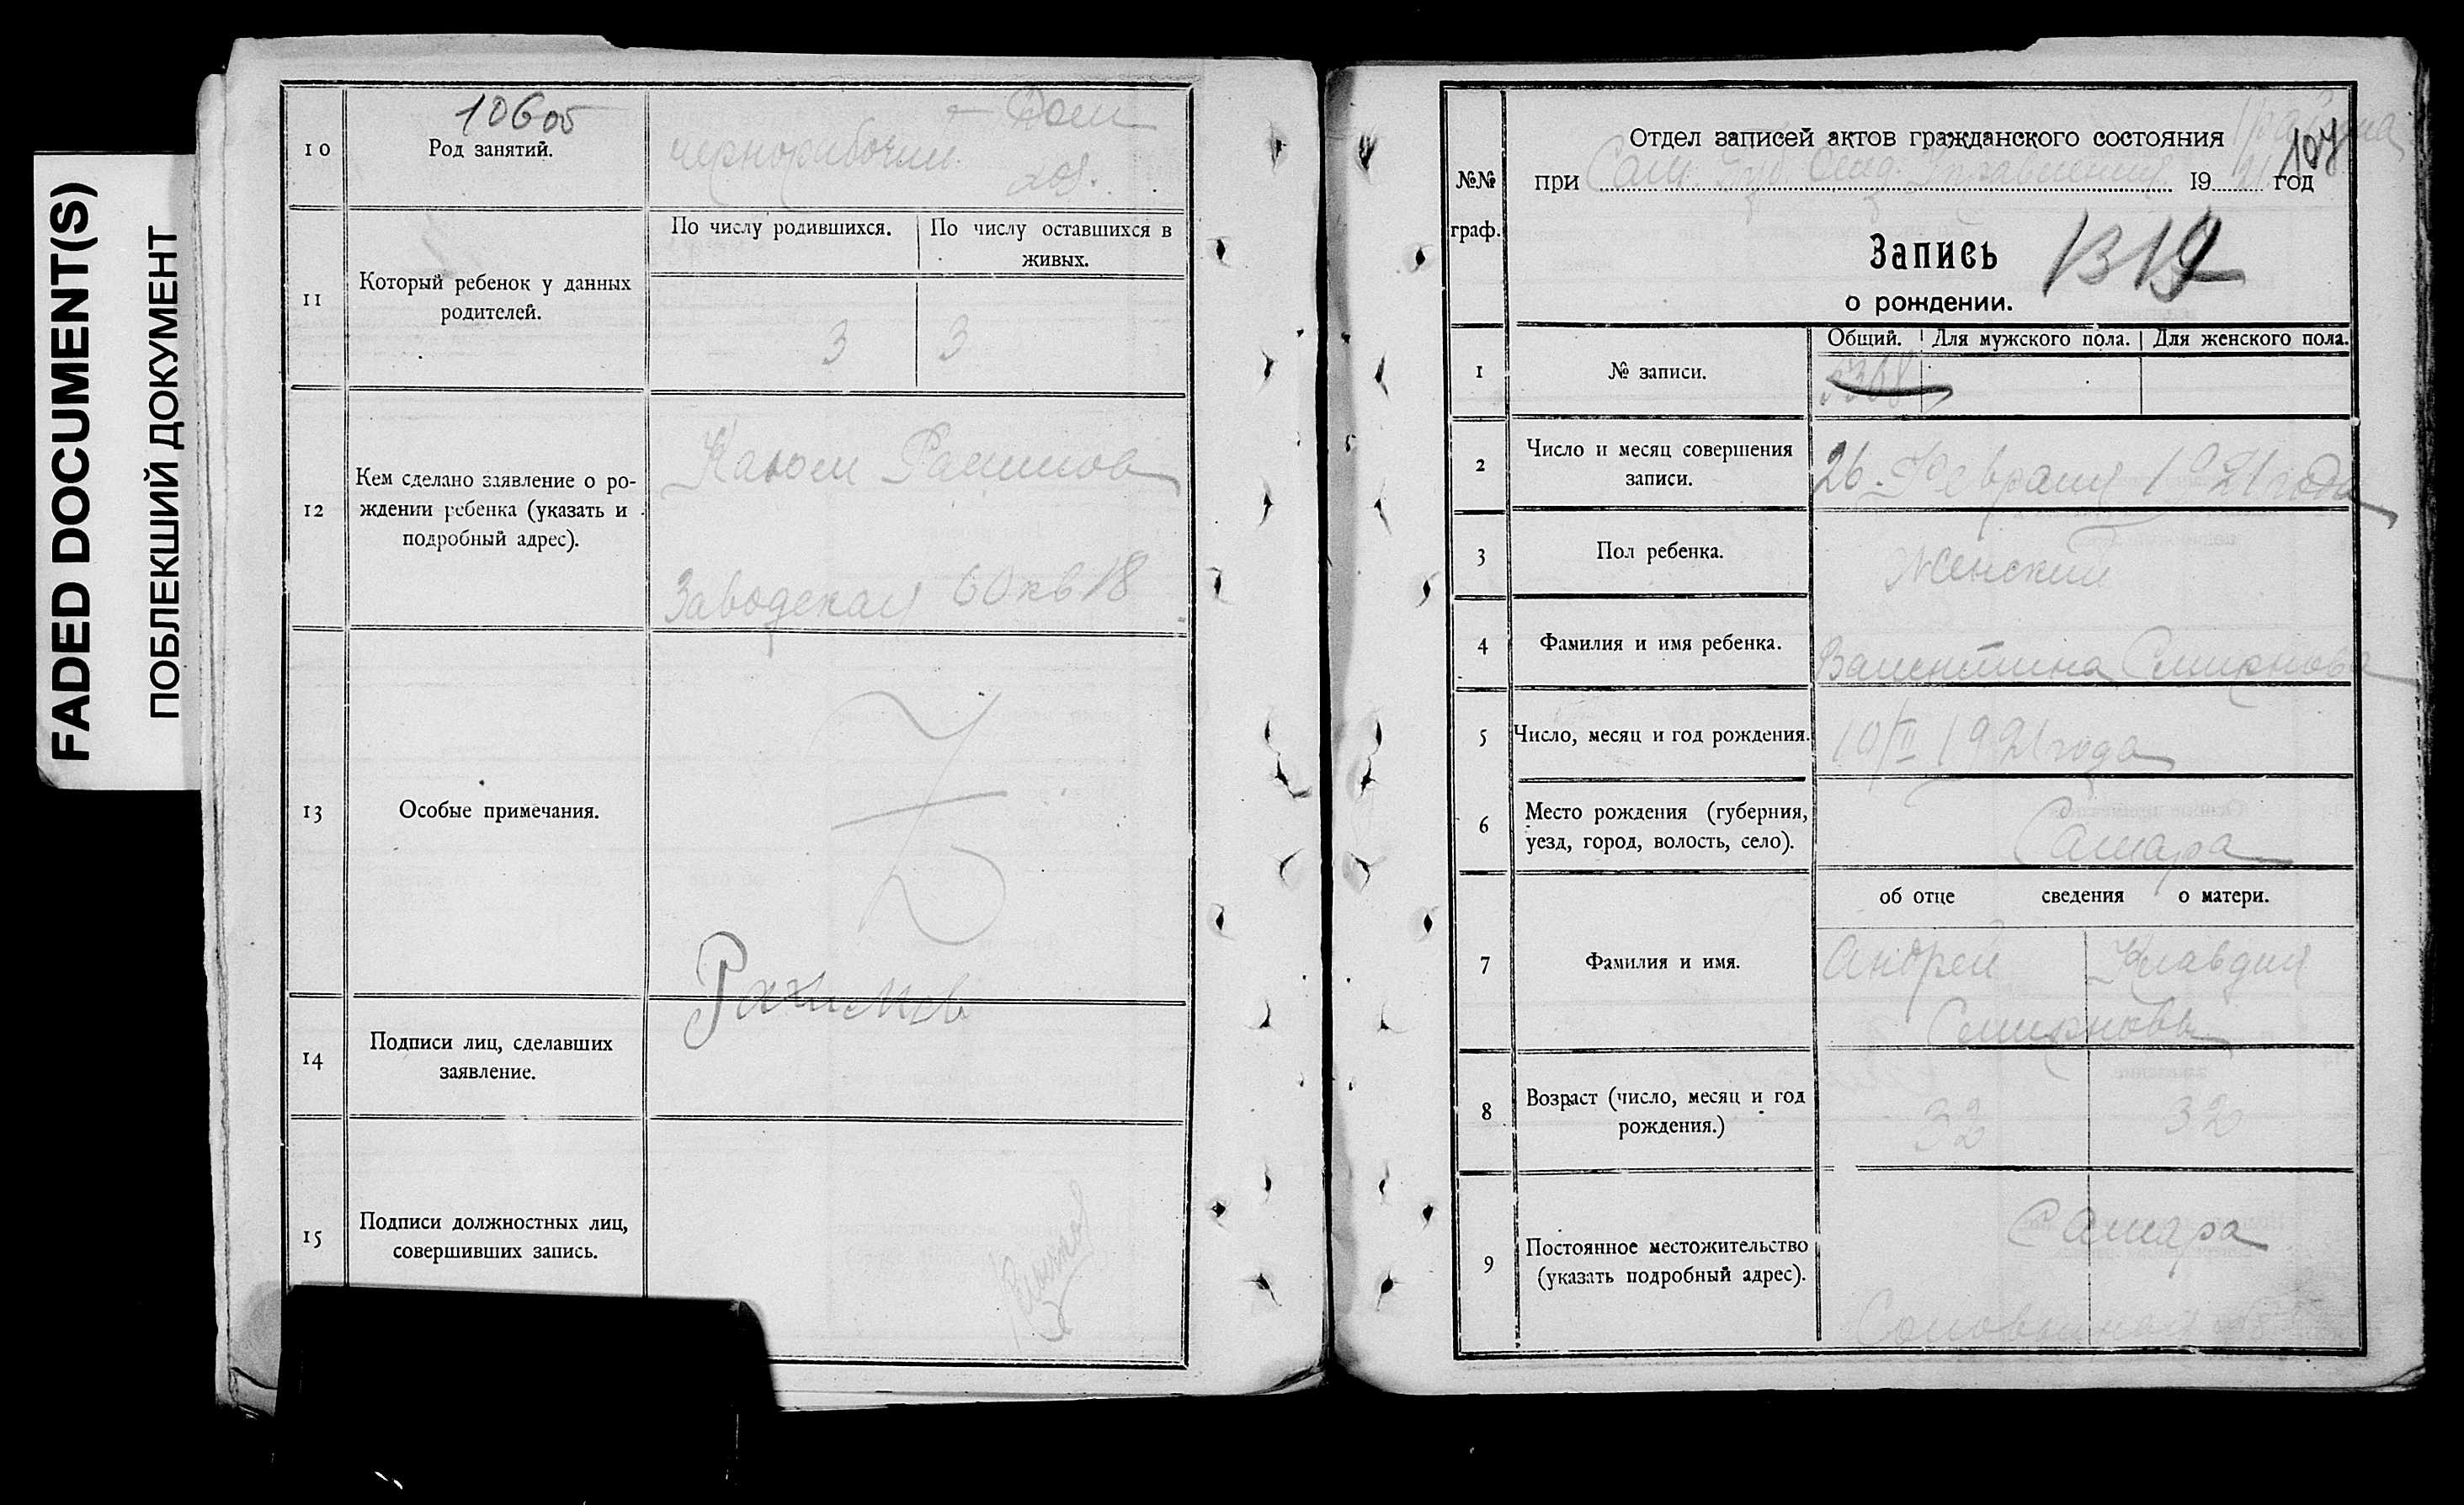 FADED DOCUMENT(S)
ПОБЛЕКШИЙ ДОКУМЕНТ
106 об
10
Род занятий.
чернорабочий
Дом
хоз.
11
Который ребенок у данных
родителей.
По числу родившихся.
По числу оставшихся в
живых.
3
3
12
Кем сделано заявление о ро-
ждении ребенка (указать и
подробный адрес).
Каюм Рахимов
Заводская 60 кв 18
13
Особые примечания.
14
Подписи лиц, сделавших
заявление.
Рахимов
15
Подписи должностных лиц,
совершивших запись.
№№
граф.
Отдел записей актов гражданского состояния
1 района
107
при Сам. Губ. Отд. Управления 1921 год
Запись
1319
о рождении.
1
№ записи.
Общий.
Для мужского пола.
Для женского пола.
2
Число и месяц совершения
записи.
26 Февраля 1921 года
3
Пол ребенка.
Женский
4
Фамилия и имя ребенка.
Валентина Смирнова
5
Число, месяц и год рождения.
10/II 1921 года
6
Место рождения (губерния,
уезд, город, волость, село).
Самара
об отце сведения о матери.
7
Фамилия и имя.
Андрей Клавдия
Смирновы
8
Возраст (число, месяц и год
рождения.)
32 32
9
Постоянное местожительство
(указать подробный адрес).
Самара